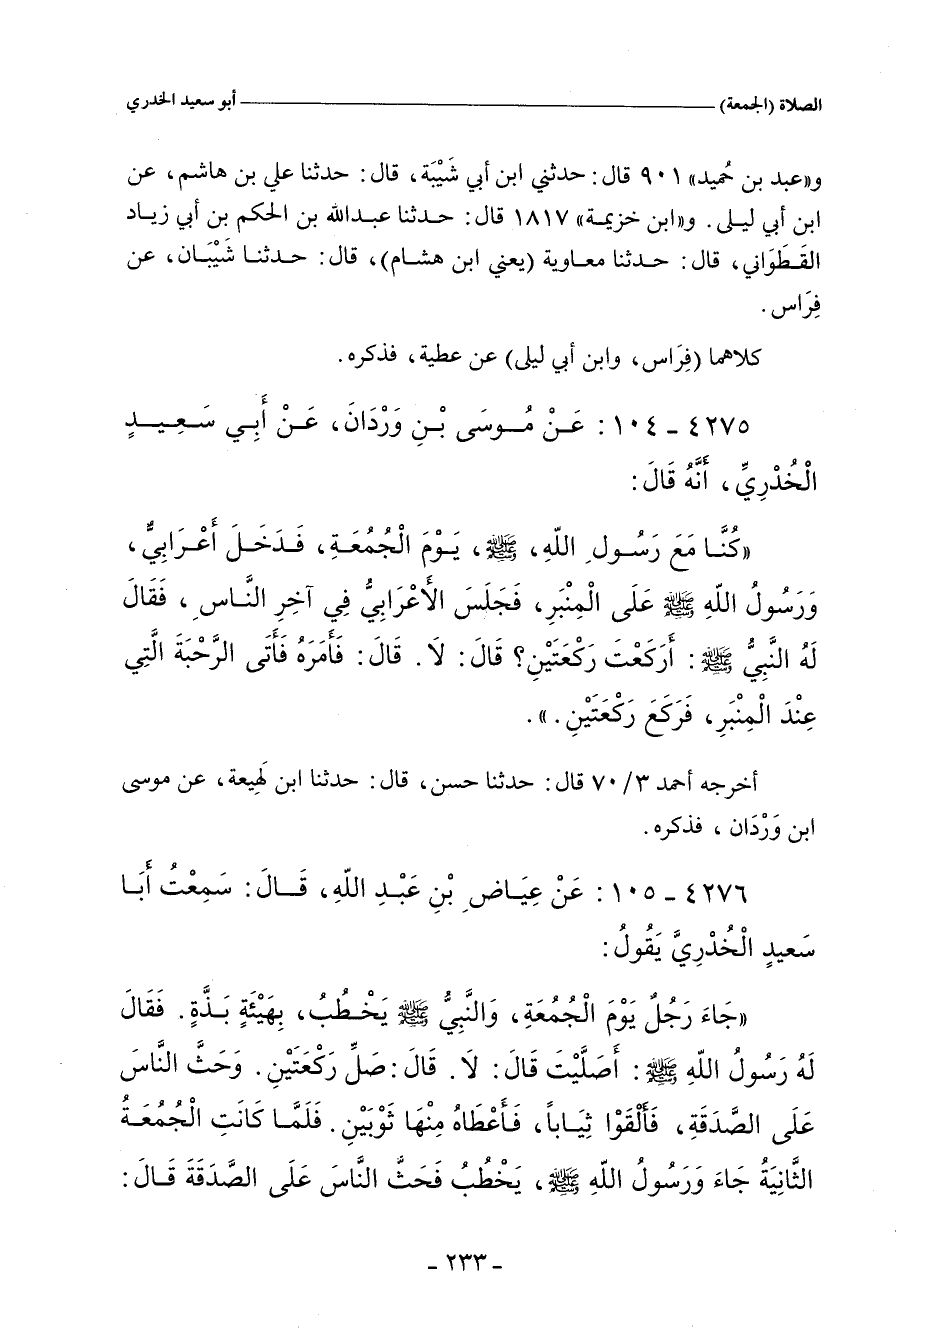 الصلاة (الجمعة) ــــــــــ أبو سعيد الخدري
و«عبد بن حُميد» ٩٠١ قال: حدثني ابن أبي شَيْبَة، قال: حدثنا علي بن هاشم، عن
ابن أبي ليلى. و«ابن خزيمة» ١٨١٧ قال: حدثنا عبدالله بن الحكم بن أبي زياد
القَطَوَاني، قال: حدثنا معاوية (يعني ابن هشام)، قال: حدثنا شَيْبَان، عن
فِرَاس.
كلاهما (فِرَاس، وابن أبي ليلى) عن عطية، فذكره.
٤٢٧٥ - ١٠٤ : عَنْ مُوسَى بْنِ وَرْدَانَ، عَنْ أَبِي سَعِيدٍ
الْخُدْرِيِّ، أَنَّهُ قَالَ:
«كُنَّا مَعَ رَسُولِ اللهِ، ﷺ، يَوْمَ الْجُمُعَةِ، فَدَخَلَ أَعْرَابِيٌّ،
وَرَسُولُ اللهِ ﷺ عَلَى الْمِنْبَرِ، فَجَلَسَ الأَعْرَابِيُّ فِي آخِرِ النَّاسِ، فَقَالَ
لَهُ النَّبِيُّ ﷺ: أَرَكَعْتَ رَكْعَتَيْنِ؟ قَالَ: لَا. قَالَ: فَأَمَرَهُ فَأَتَى الرَّحْبَةَ الَّتِي
عِنْدَ الْمِنْبَرِ، فَرَكَعَ رَكْعَتَيْنِ.».
أخرجه أحمد ٣/ ٧٠ قال: حدثنا حسن، قال: حدثنا ابن لَهِيعة، عن موسى
ابن وَرْدَان ، فذكره.
٤٢٧٦ - ١٠٥ : عَنْ عِيَاضِ بْنِ عَبْدِ اللهِ، قَالَ: سَمِعْتُ أَبَا
سَعيدٍ الْخُدْرِيَّ يَقُولُ:
«جَاءَ رَجُلٌ يَوْمَ الْجُمُعَةِ، وَالنَّبِيُّ ﷺ يَخْطُبُ، بِهَيْئَةٍ بَذَّةٍ. فَقَالَ
لَهُ رَسُولُ اللهِ ﷺ: أَصَلَّيْتَ قَالَ: لَا. قَالَ: صَلِّ رَكْعَتَيْنِ. وَحَثَّ النَّاسَ
عَلَى الصَّدَقَةِ، فَأَلْقَوْا ثِيَاباً، فَأَعْطَاهُ مِنْهَا ثَوْبَيْنِ. فَلَمَّا كَانَتِ الْجُمُعَةُ
الثَّانِيَةُ جَاءَ وَرَسُولُ اللهِ ﷺ، يَخْطُبُ فَحَثَّ النَّاسَ عَلَى الصَّدَقَةِ قَالَ:
- ٢٣٣ -